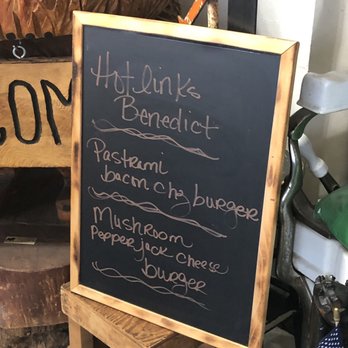 COM
Hotlinks
Benedict
Pastrami
bacon chz burger
Mushroom
Pepper jack cheese
burger